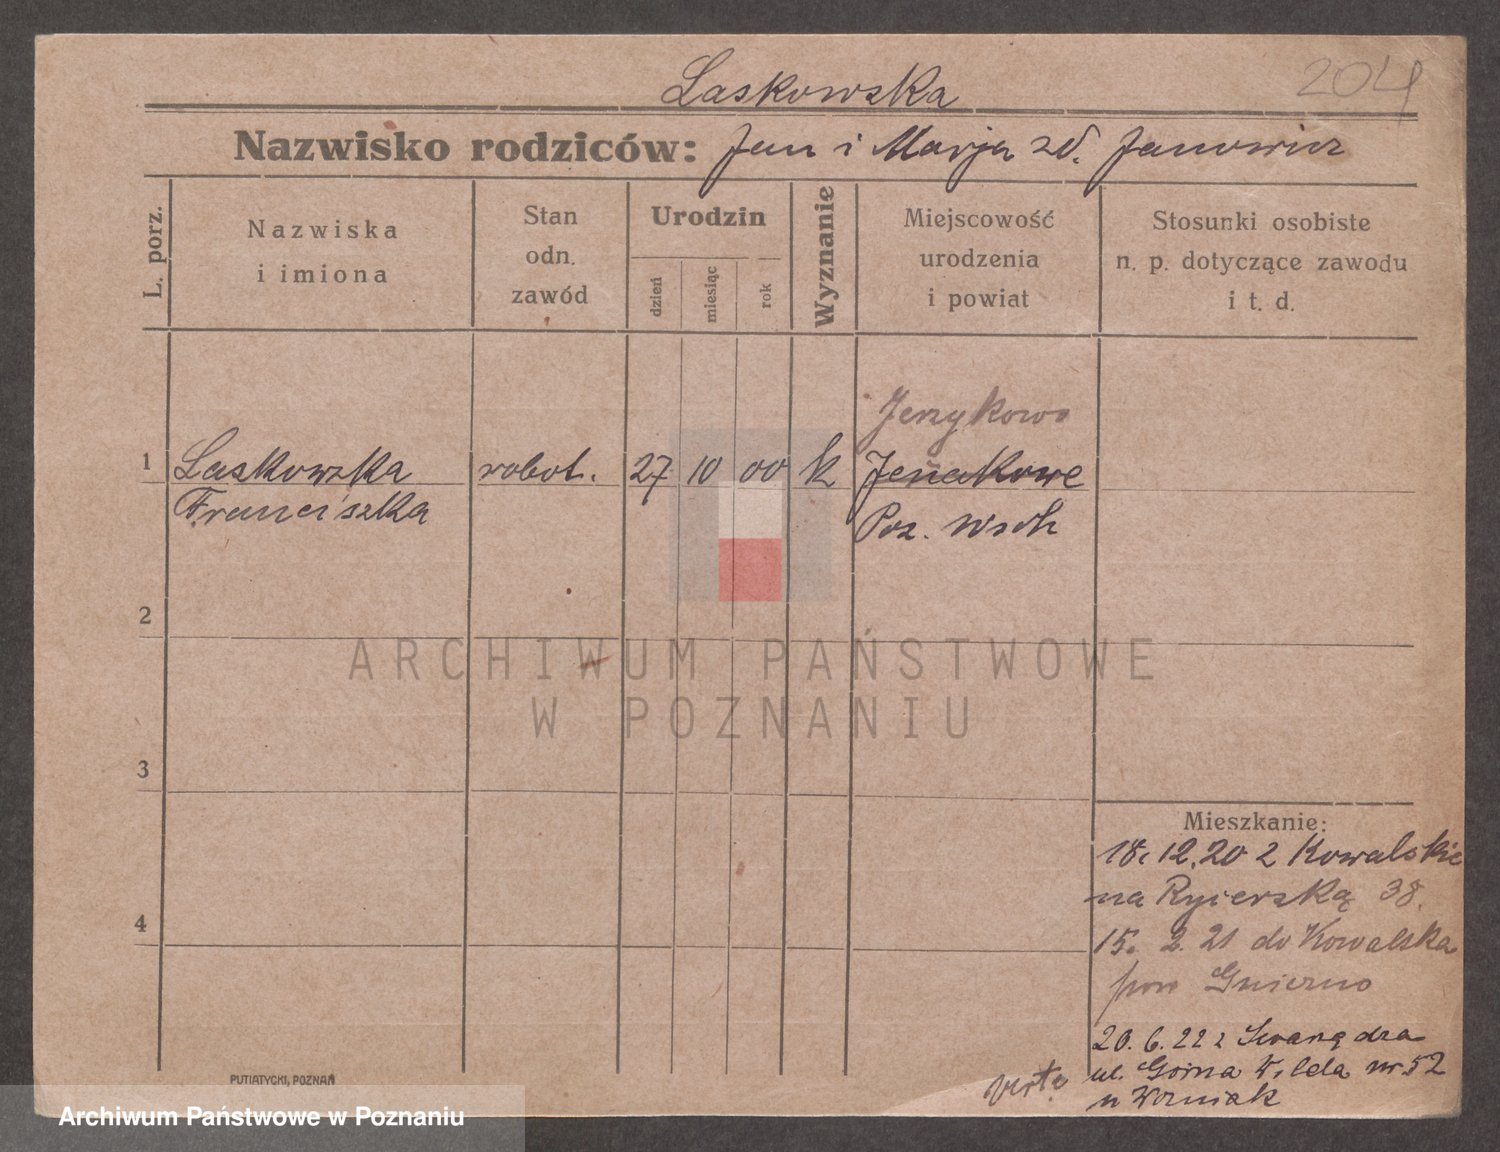 204
Laskowska
Nazwisko rodziców: Jan i Marja zd. Janowicz
L. porz.
Nazwiska
i imiona
Stan
odn.
zawód
Urodzin
dzień
miesiąc
rok
Wyznanie
Miejscowość
urodzenia
i powiat
Stosunki osobiste
n. p. dotyczące zawodu
i t. d.
Jerzykowo
1 Laskowska robot. 27 10 00 k
Franciszka Poz. Wsch
2
ARCHIWUM PAŃSTWOWE
W POZNANIU
3
4
Mieszkanie:
18. 12. 20 z Kowalskie
na Rycerską 38.
15. 2. 21 do Kowalska
pow Gniezno
20. 6. 22 z
ul. Górna Wilda nr 52
u Woźniak
verte
PUTIATYCKI, POZNAŃ
Archiwum Państwowe w Poznaniu